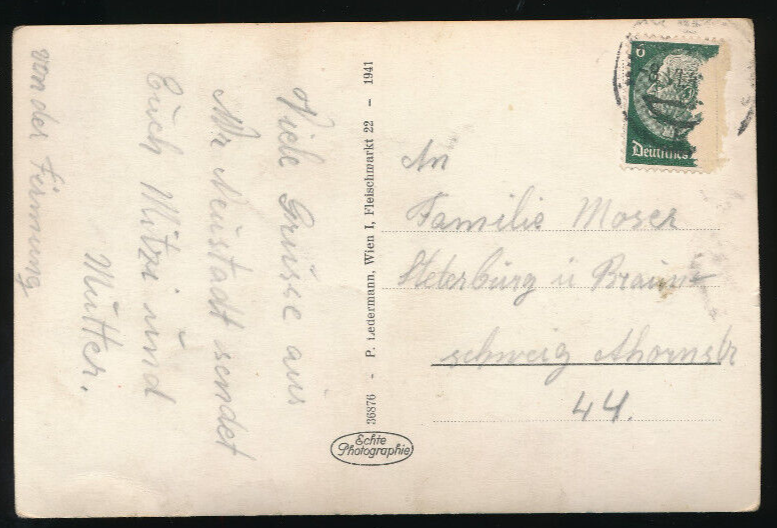 Viele Grüsse aus
Wr Neustadt sendet
Euch Mitzi und
Mutter.
von der Firmung
36876 - P. Ledermann, Wien I, Fleischmarkt 22 - 1941
Echte
Photographie
6
Deutsches
An
Familie Moser
Steterburg ü Braun-
schweig Ahornstr
44.